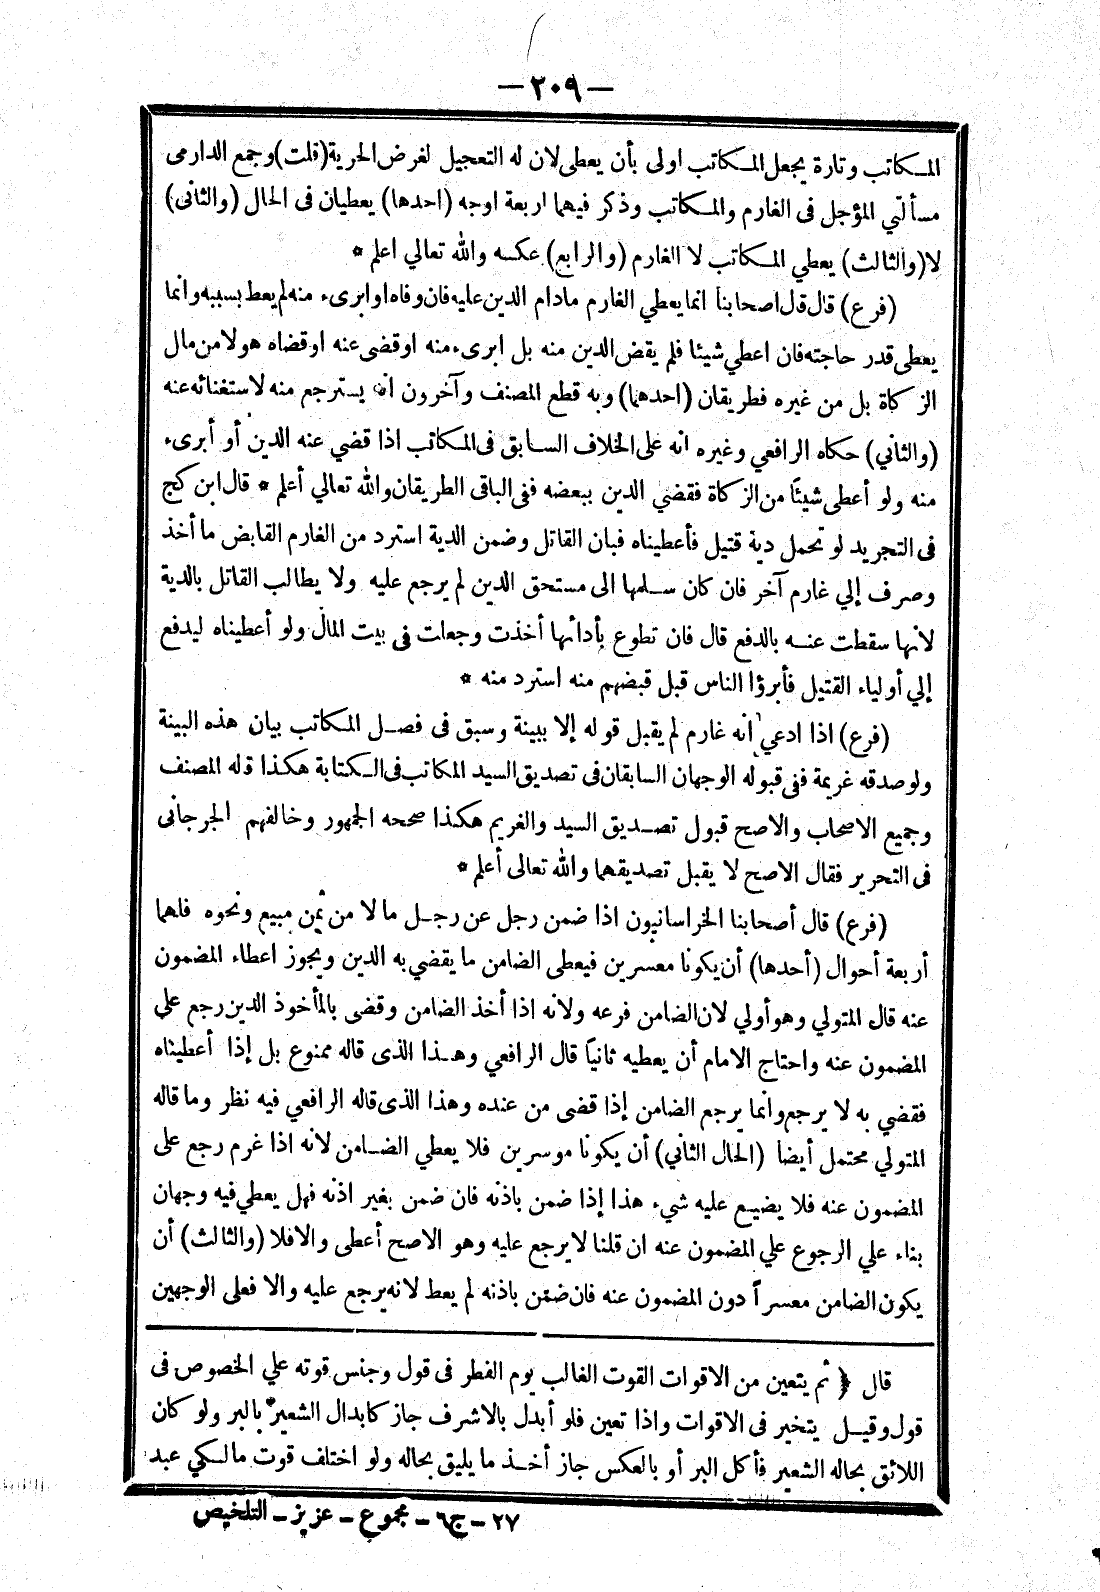 — ٢٠٩ —
المكاتب وتارة يجعل المكاتب اولى بأن يعطى لان له التعجيل لغرض الحرية (قلت) وجمع الدارمى
مسألتي المؤجل فى الغارم والمكاتب وذكر فيهما اربعة اوجه (احدها) يعطيان فى الحال (والثانى)
لا (والثالث) يعطي المكاتب لا الغارم (والرابع) عكسه والله تعالي اعلم *
(فرع) قال قال اصحابنا انما يعطي الغارم مادام الدين عليه فان وفاه او ابرىء منه لم يعط بسببه وانما
يعطى قدر حاجته فان اعطي شيئا فلم يقض الدين منه بل ابرىء منه او قضى عنه او قضاه هو لا من مال
الزكاة بل من غيره فطريقان (احدهما) وبه قطع المصنف وآخرون انه يسترجع منه لاستغنائه عنه
(والثاني) حكاه الرافعي وغيره انه على الخلاف السابق فى المكاتب اذا قضي عنه الدين أو أبرىء
منه ولو أعطى شيئًا من الزكاة فقضي الدين ببعضه ففى الباقى الطريقان والله تعالي أعلم * قال ابن كج
فى التجريد لو تحمل دية قتيل فأعطيناه فبان القاتل وضمن الدية استرد من الغارم القابض ما أخذ
وصرف إلي غارم آخر فان كان سلمها الى مستحق الدين لم يرجع عليه ولا يطالب القاتل بالدية
لانها سقطت عنه بالدفع قال فان تطوع بأدائها أخذت وجعلت فى بيت المال ولو أعطيناه ليدفع
إلي أولياء القتيل فأبرؤا الناس قبل قبضهم منه استرد منه *
(فرع) اذا ادعي انه غارم لم يقبل قوله إلا ببينة وسبق فى فصل المكاتب بيان هذه البينة
ولو صدقه غريمة ففى قبوله الوجهان السابقان فى تصديق السيد المكاتب فى الكتابة هكذا قاله المصنف
وجميع الاصحاب والاصح قبول تصديق السيد والغريم هكذا صححه الجمهور وخالفهم الجرجانى
فى التحرير فقال الاصح لا يقبل تصديقهما والله تعالى أعلم *
(فرع) قال أصحابنا الخراسانيون اذا ضمن رجل عن رجل مالا من ثمن مبيع ونحوه فلهما
أربعة أحوال (أحدها) أن يكونا معسرين فيعطى الضامن ما يقضي به الدين ويجوز اعطاء المضمون
عنه قال المتولي وهو أولي لان الضامن فرعه ولانه اذا أخذ الضامن وقضى بالمأخوذ الدين رجع علي
المضمون عنه واحتاج الامام أن يعطيه ثانياً قال الرافعي وهذا الذى قاله ممنوع بل إذا أعطيناه
فقضي به لا يرجع وانما يرجع الضامن إذا قضى من عنده وهذا الذى قاله الرافعي فيه نظر وما قاله
المتولي محتمل أيضا (الحال الثاني) أن يكونا موسرين فلا يعطي الضامن لانه اذا غرم رجع على
المضمون عنه فلا يضيع عليه شيء هذا إذا ضمن باذنه فان ضمن بغير اذنه فهل يعطي فيه وجهان
بناء علي الرجوع علي المضمون عنه ان قلنا لا يرجع عليه وهو الاصح أعطى والا فلا (والثالث) أن
يكون الضامن معسراً دون المضمون عنه فان ضمن باذنه لم يعط لانه يرجع عليه والا فعلى الوجهين
قال ﴿ ثم يتعين من الاقوات القوت الغالب يوم الفطر فى قول وجنس قوته علي الخصوص فى
قول وقيل يتخير فى الاقوات واذا تعين فلو أبدل بالاشرف جاز كابدال الشعير بالبر ولو كان
اللائق بحاله الشعير فأكل البر أو بالعكس جاز أخذ ما يليق بحاله ولو اختلف قوت مالكي عبد
٢٧ - ج ٦ - مجموع - عزيز - التلخيص